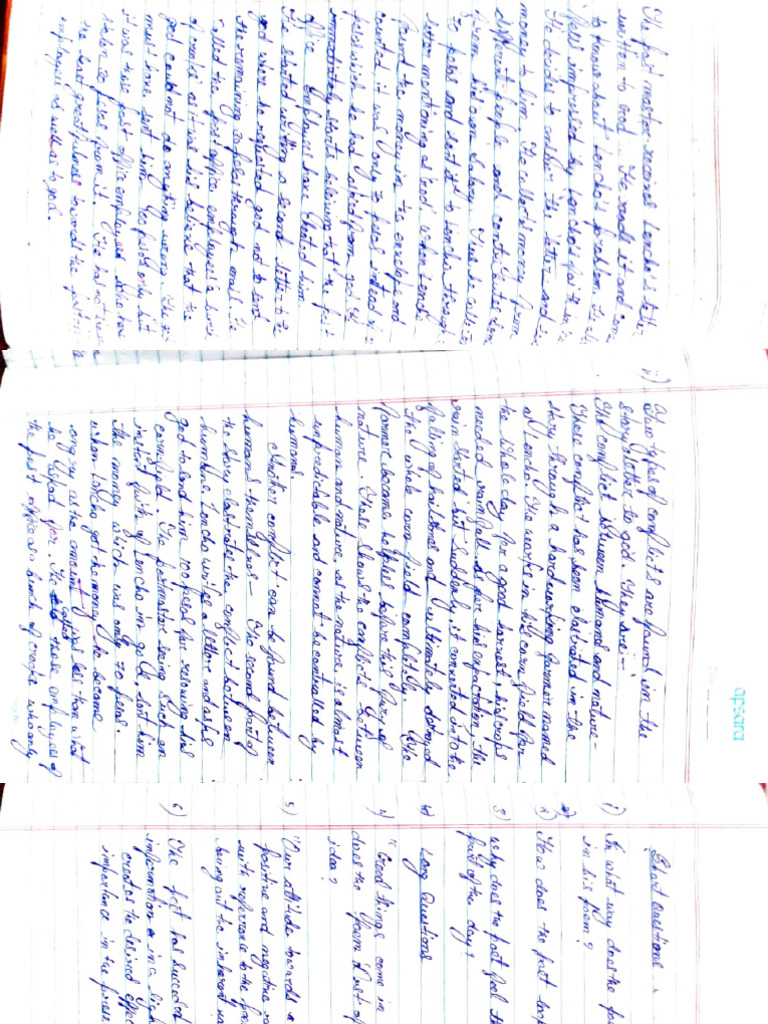 The post master receives Lencho's letter
written to God. He reads it and came
to know about Lencho's problem. He also
feels impressed by Lencho's faith in
He decides to answer the letter and
money to him. He collects money from
different people and contributes some
from his own salary. Thus he able to
70 pesos and sent it to Lencho through
letter mentioning as God. when Lencho
found the money in the envelope and
counted, it was only 70 pesos instead of
pesos which he had asked from god. He
immediately starts claiming that the post
office employees have looted him.
He started writing a second letter to the
god where he requested god not to send
the remaining 30 pesos through mail. He
called the post office employees a bunch
of crooks as it was his believe that the
god could not do anything wrong. The god
must have sent him 100 pesos only but
it was these post office employees who have
stolen 30 pesos from it. He has not
the least gratefulness towards the post office
employees as well as to god.
apsara
ii) Two types of conflicts are found in the
story a letter to god. They are :-
The conflict between Humans and nature -
These conflict has been elustrated in the
story through a hardworking farmer named
as Lencho. He works in his corn field for
the whole day for a good harvest, his crops
needed rainfall. As per his expectation the
rain started but suddenly it converted into the
falling of hailstones and ultimately destroyed
the whole corn field completely. The
farmer become helpless before this fury of
nature. These shows the conflict between
human and nature as the nature is almost
unpredictable and cannot be controlled by
humans
Another conflict can be found between
humans themselves - The second part of
the story elustrates the conflict between
humans. Lencho writes a letter and asks
god to send him 100 pesos for resowing his
cornfield. The postmaster seeing such an
instant faith of Lencho in god, sent him
the money which was only 70 pesos.
when Lencho got the money he become
angry as the amount was less than what
he asked for. He called these employees of
the post office a bunch of crooks who only
Short questions
1) In what way does the
in his poem?
2) How does the poet
3) Why does the poet feel
part of the day?
Long Questions
4) "Good things come in
does the poem Dust of
idea?
5) "Our attitude towards
positive and negative
with reference to the
bring out the inherent
6) The poet has succeeded
information in a
creates the desired effect
importance in the